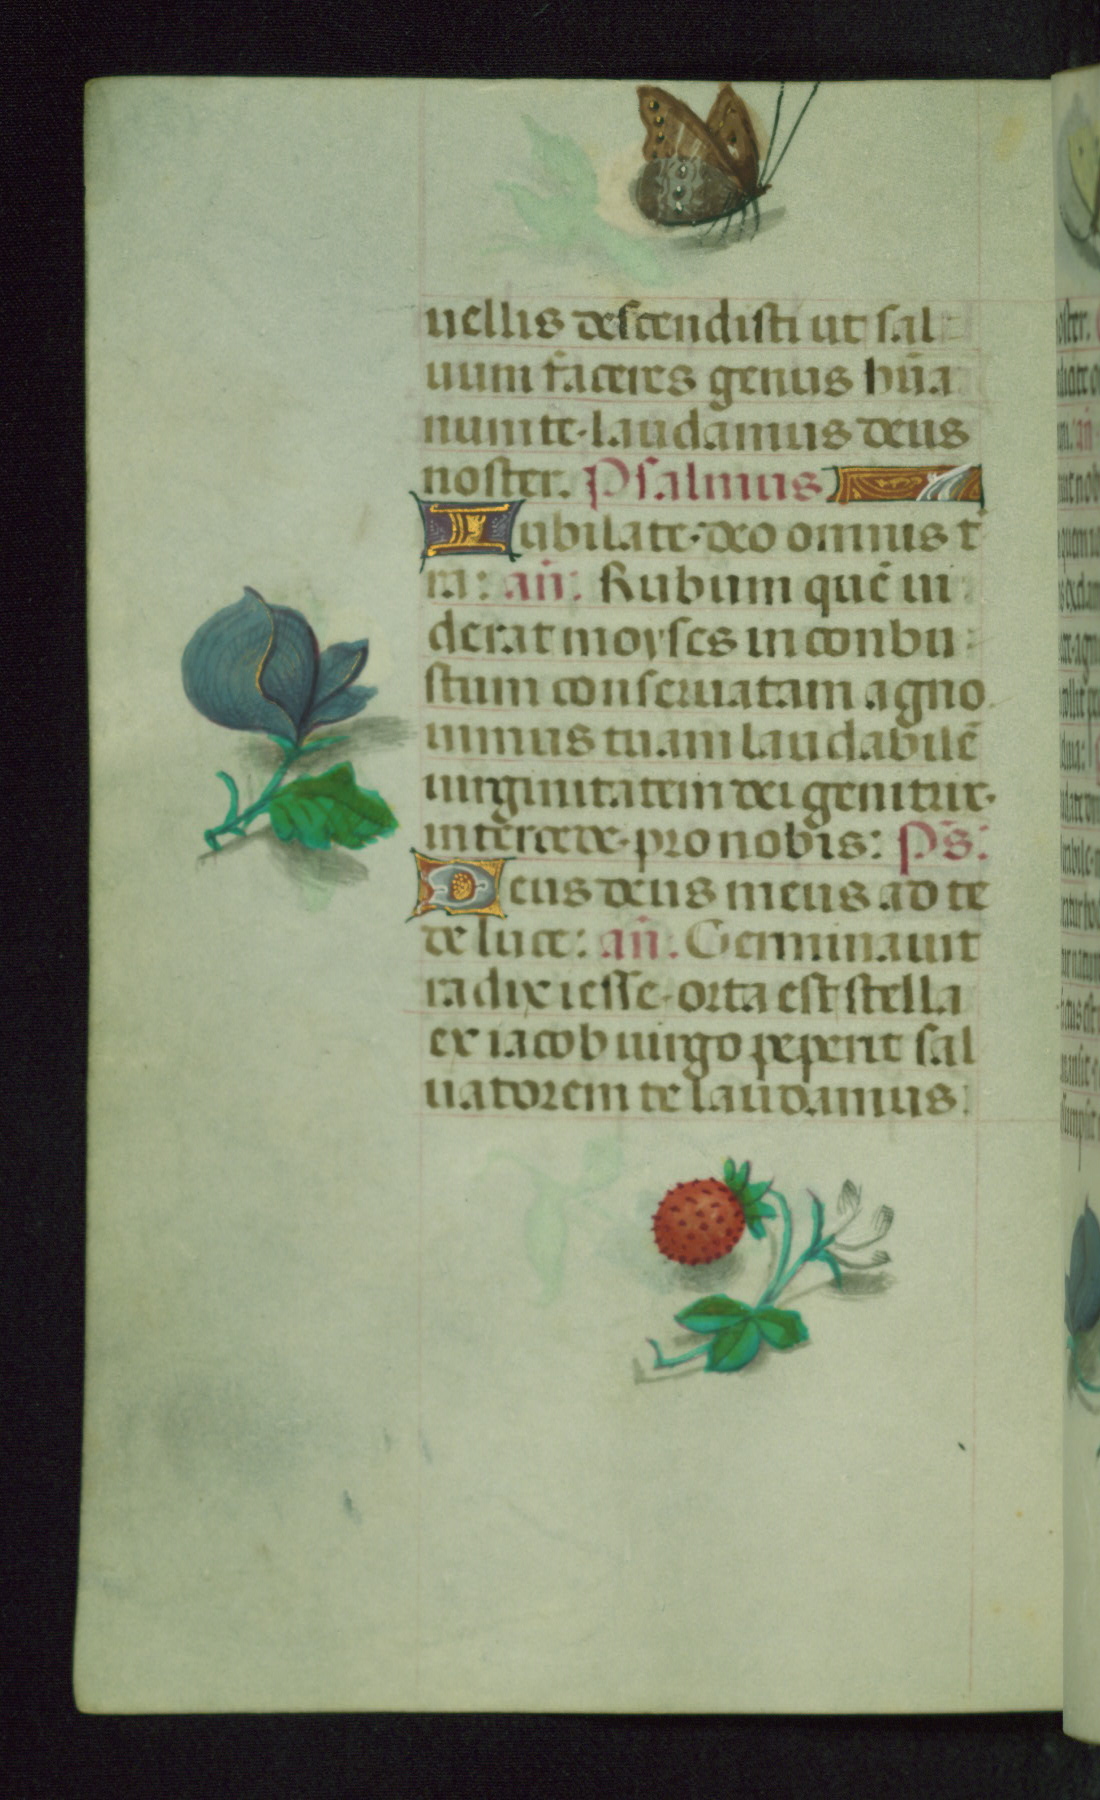 uellis descendisti ut sal
uum faceres genus hūa
num te laudamus deus
noster. Psalmus
Iubilate deo omnis t̄
ra: an̄. Rubum quē ui
derat moyses in conbu
stum conseruatam agno
uimus tuam laudabilē
uirginitatem dei genitrix
intercede pro nobis: Ps̄:
Deus deus meus ad te
de luce: an̄. Germinauit
radix iesse orta est stella
ex iacob uirgo peperit sal
uatorem te laudamus